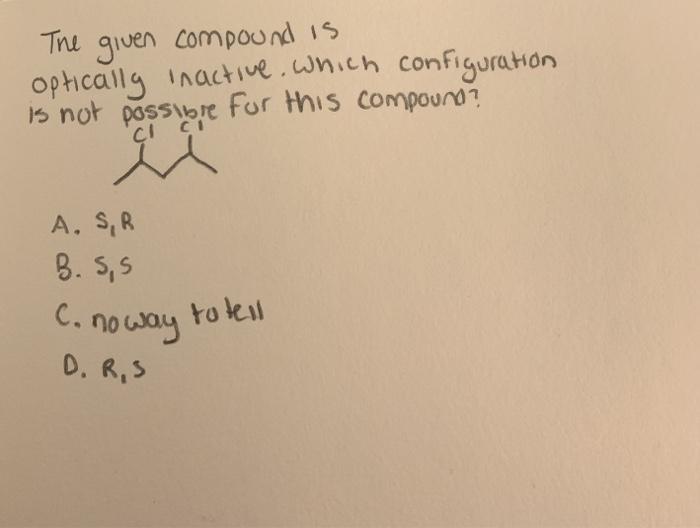 The given compound is
optically inactive. Which configuration
is not possible for this compound?
Cl Cl
A. S, R
B. S, S
C. no way to tell
D. R, S